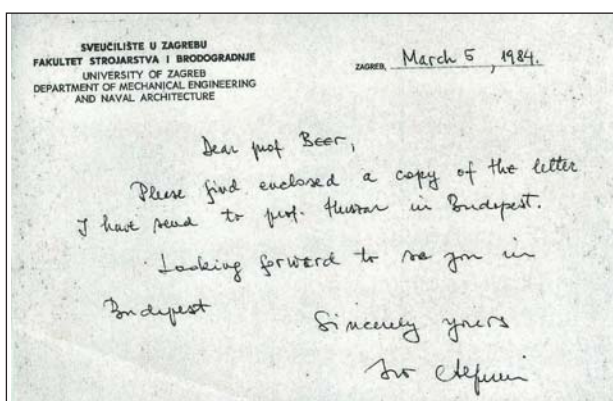 SVEUČILIŠTE U ZAGREBU
FAKULTET STROJARSTVA I BRODOGRADNJE
UNIVERSITY OF ZAGREB
DEPARTMENT OF MECHANICAL ENGINEERING
AND NAVAL ARCHITECTURE
ZAGREB, March 5, 1984.
Dear prof Beer,
Please find enclosed a copy of the letter
I have send to prof. in Budapest.
Looking forward to see you in
Budapest
Sincerely yours
Ivo